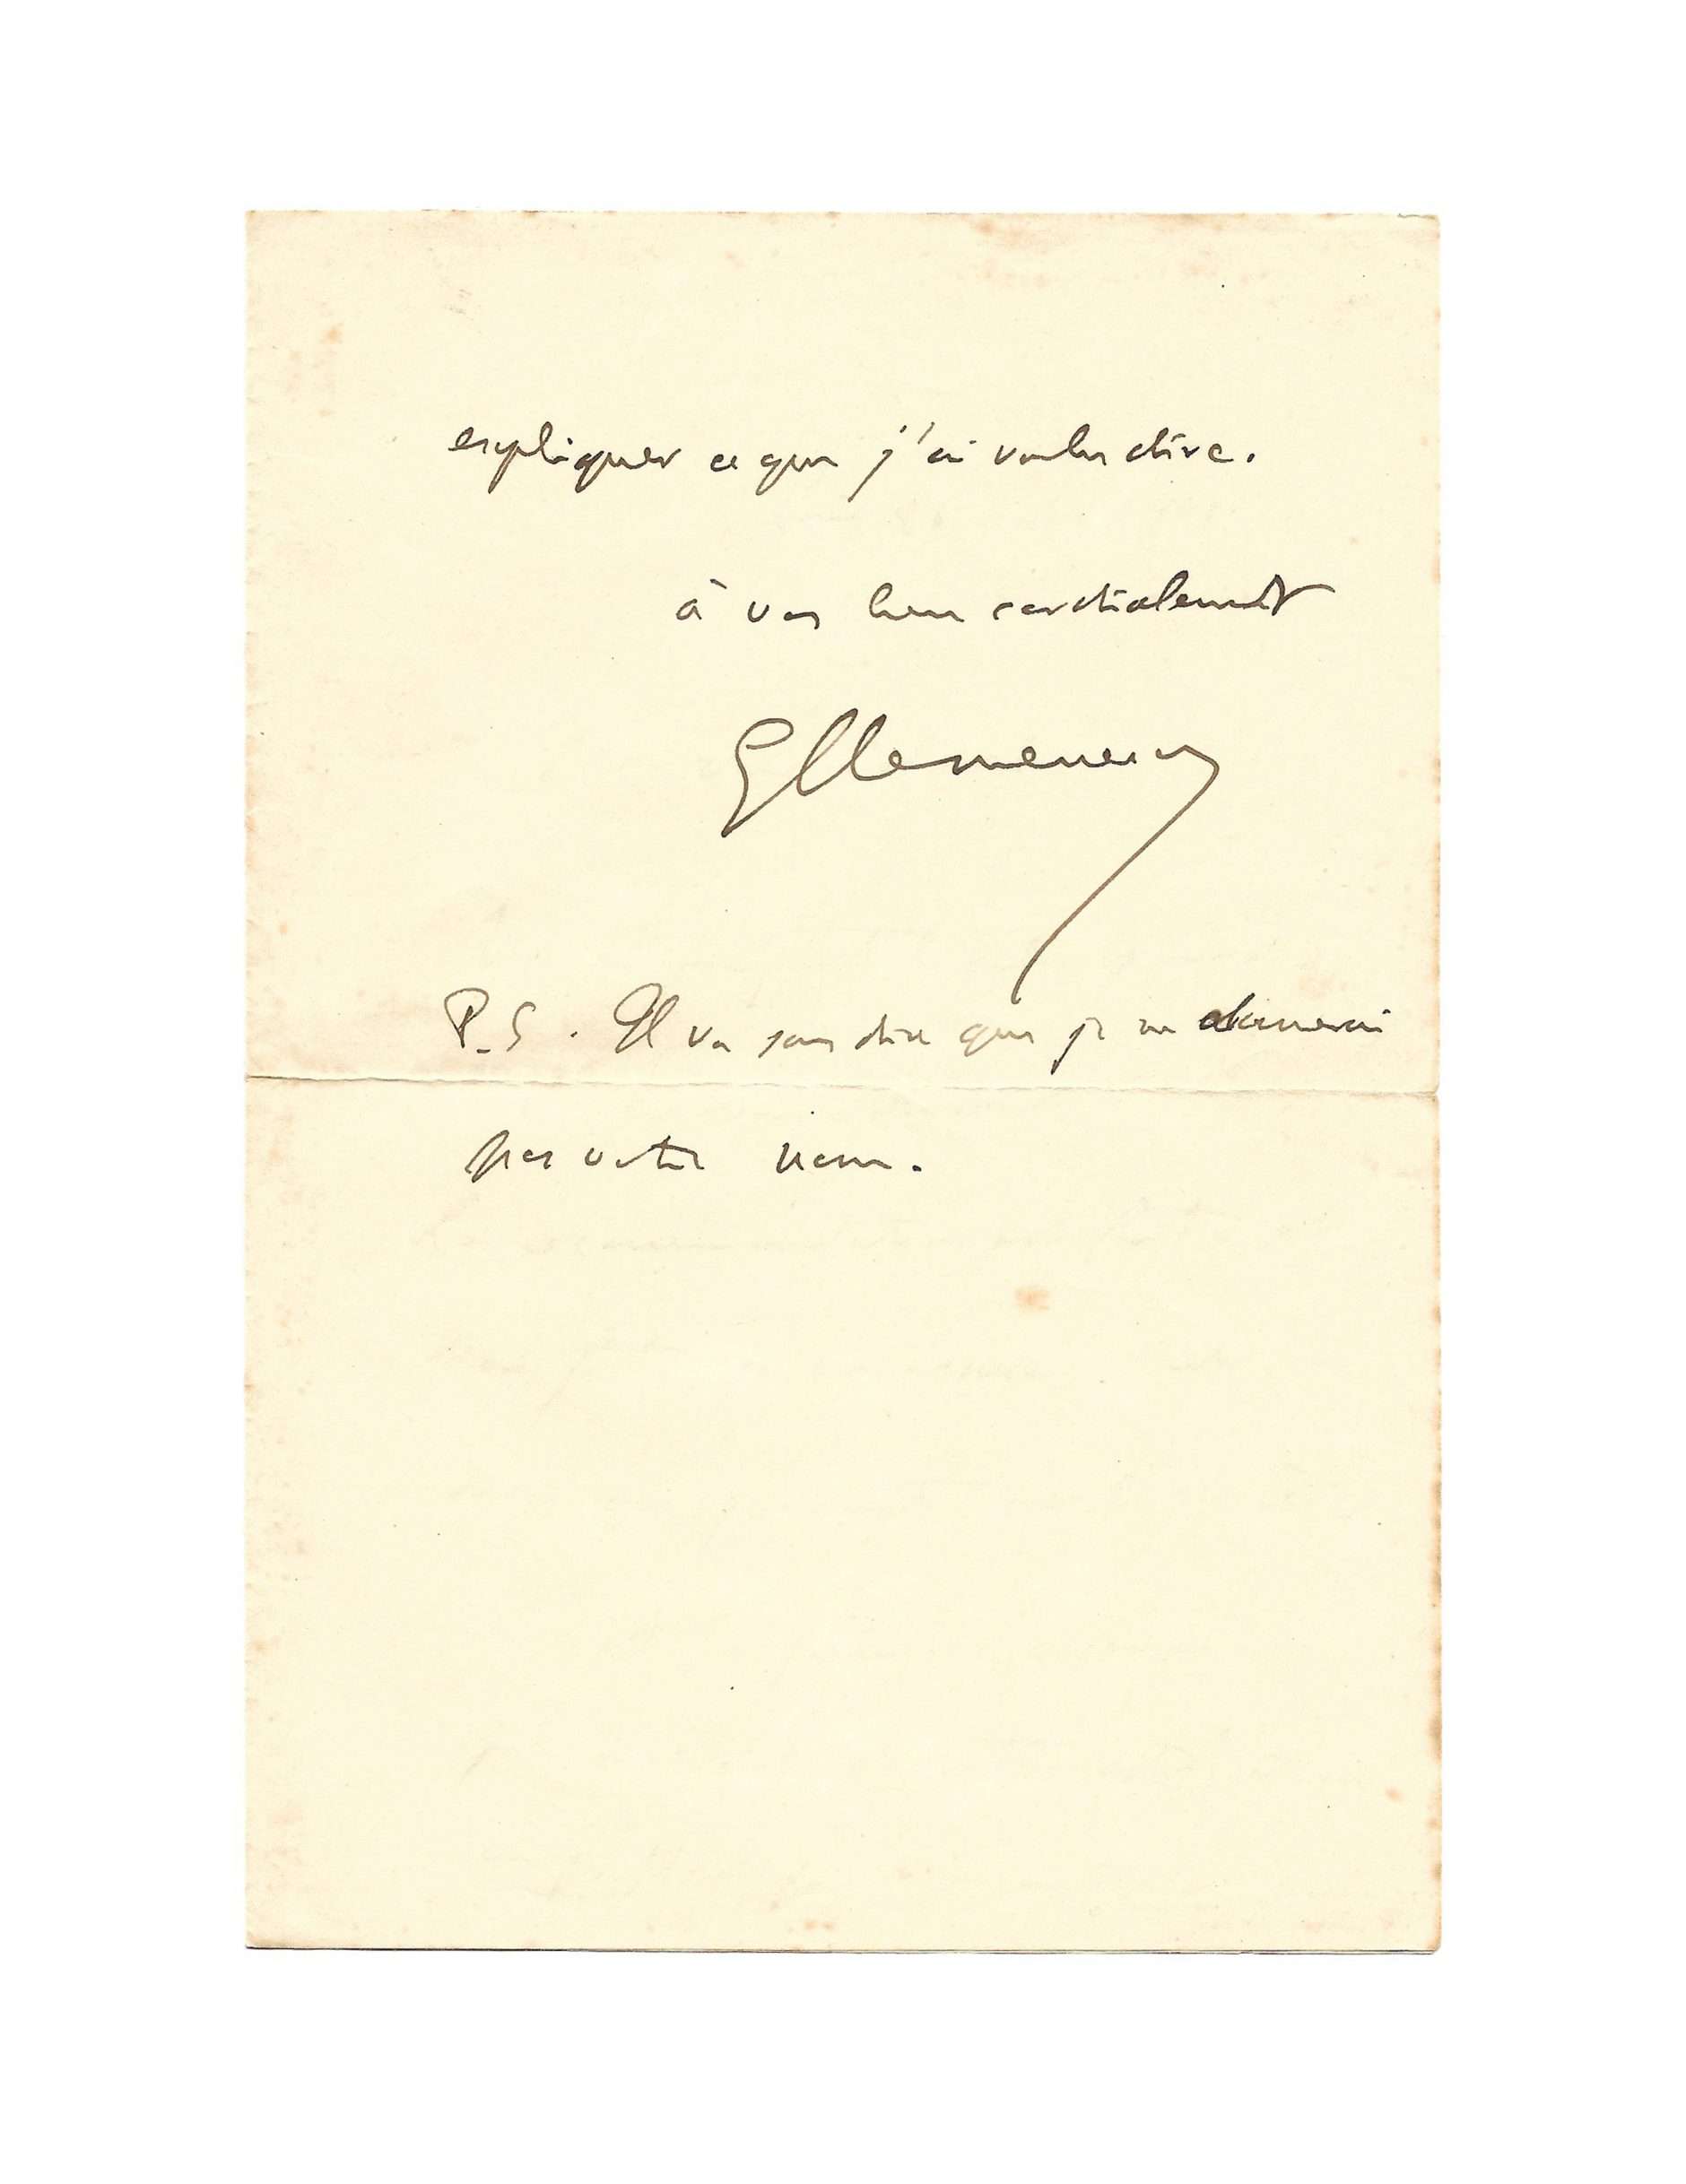 expliquer ce que j'ai voulu dire.
à vous bien cordialement
GClemenceau
P.S. Il va sans dire que je ne donnerai
pas votre nom.